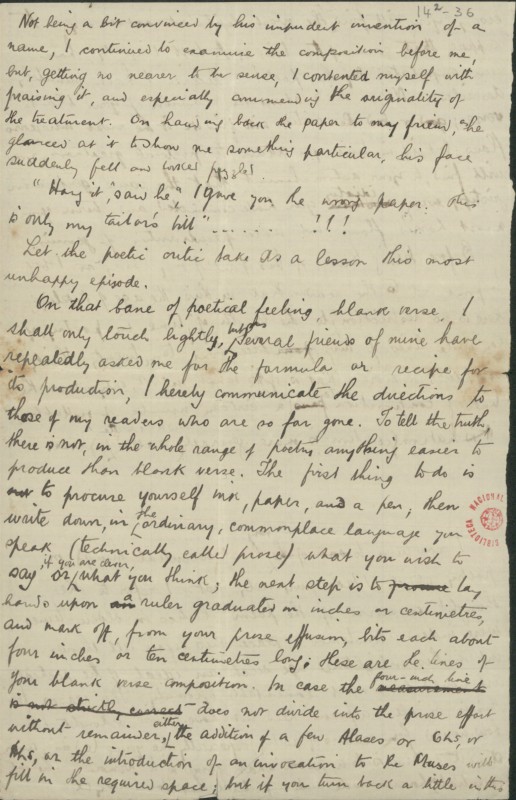 14²-36
Not being a bit convinced by his impudent invention of a
name, I continued to examine the composition before me,
but, getting no nearer to the sense, I contented myself with
praising it, and especially commending the originality of
the treatment. On handing back the paper to my friend, he
glanced at it to show me something particular, his face
suddenly fell and looked puzzled.
"Hang it," said he, "I gave you the wrong paper. This
is only my tailor's bill" ...... !!!
Let the poetic critic take as a lesson this most
unhappy episode.
On that bane of poetical feeling, blank verse, I
shall only touch lightly, but as several friends of mine have
repeatedly asked me for the formula or recipe for
its production, I hereby communicate the directions to
those of my readers who are so far gone. To tell the truth,
there is not, in the whole range of poetry anything easier to
produce than blank verse. The first thing to do is
not to procure yourself ink, paper, and a pen; then
write down, in the ordinary, commonplace language you
speak (technically called prose) what you wish to
say or, if you are clever, what you think; the next step is to lay
hands upon an a ruler graduated in inches or centimetres,
and mark off, from your prose effusion, bits each about
four inches or ten centimetres long; these are the lines of
your blank verse composition. In case the measurement four-inch line
is not strictly correct does not divide into the prose effort
without remainder, either the addition of a few Alases or Ohs, or
Ahs, or the introduction of an invocation to the Muses will
fill in the required space; but if you turn back a little in this
BIBLIOTECA NACIONAL